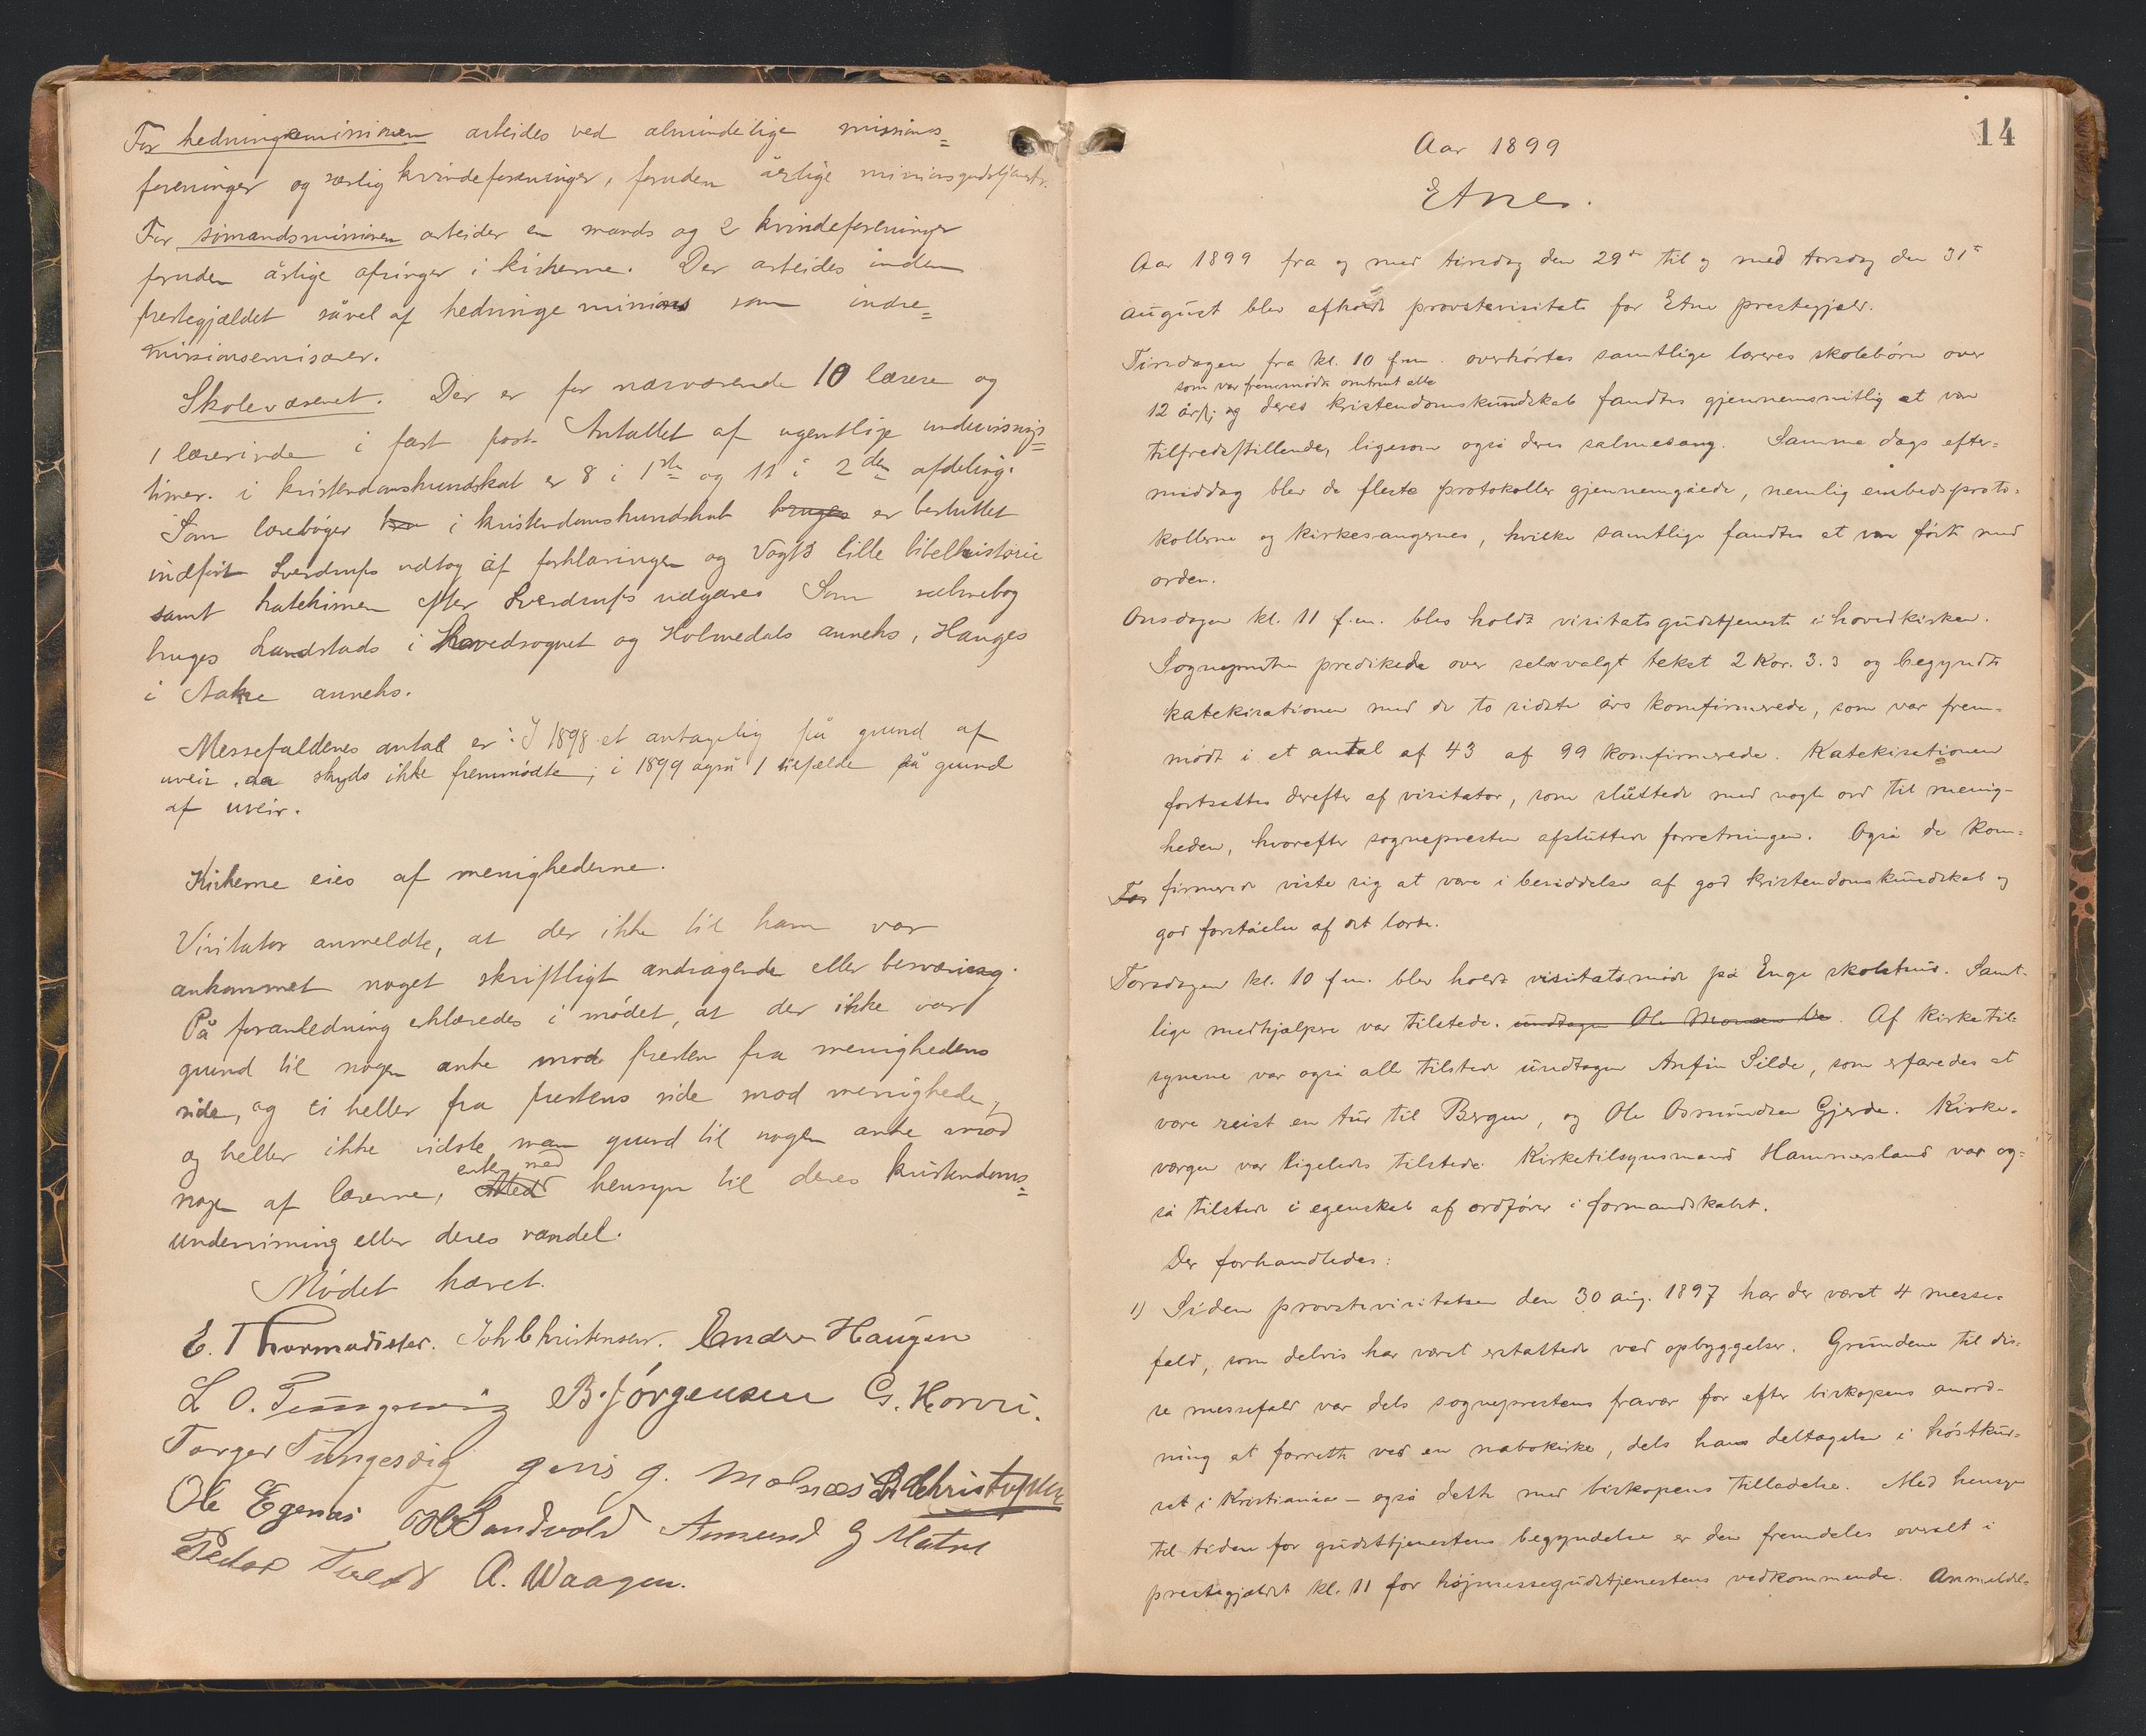 For hedningemissionen arbeides ved almindelige missions=
foreninger og særlig kvindeforeninger, foruden årlige missionsgudstjenester.
For sømandsmissionen arbeider en mands og 2 kvindeforeninger
foruden årlige ofringer i kirkerne. Der arbeides inden
prestegjældet såvel af hedningemissions som indre=
missionsemisærer.
Skolevæsenet. Der er for nærværende 10 lærere og
1 lærerinde i fast post. Antallet af ugentlige undervisnings=
timer i kristendomskundskab er 8 i 1ste og 11 i 2den afdeling.
Som lærebøger i kristendomskundskab bruges er besluttet
indført Sverdrups udtog af forklaringen og Vogts lille bibelhistorie
samt katekismen efter Sverdrups udgave. Som salmebog
bruges Landstads i Hovedsognet og Holmedals anneks, Hauges
i Aakre anneks.
Messefaldenes antal er: I 1898 et antagelig på grund af
uveir, da skyds ikke fremmødte; i 1899 også 1 tilfælde på grund
af uveir.
Kirkerne eies af menighederne.
Visitator anmeldte, at der ikke til ham var
ankommet noget skriftligt andragende eller besværing.
På foranledning erklæredes i mødet, at der ikke var
grund til nogen anke mod presten fra menighedens
side, og ei heller fra prestens side mod menigheden,
og heller ikke vidste man grund til nogen anke mod
nogen af lærerne, enten med Med hensyn til deres kristendoms=
undervisning eller deres vandel.
Mødet hævet.
E. Thormodsæter. Joh Christensen. Endre Haugen
L O. Tungesvig B. Jørgensen G. Horvei.
Torger Tungesvig Geris G. Molnes Christophersen
Ole Egenes Sandvold Aamund G Matre
Peder Tveit A. Waagen.
14
Aar 1899
Etne.
Aar 1899 fra og med tirsdag den 29de til og med torsdag den 31te
august blev afholdt provstevisitats for Etne prestegjæld.
Tirsdagen fra kl. 10 fm. overhørtes samtlige læreres skolebørn over
som var fremmødt omtrent alle
12 år; og deres kristendomskundskab fandtes gjennemsnitlig at være
tilfredsstillende, ligesom også deres salmesang. Samme dags efter=
middag blev de fleste protokoller gjennemgåede, nemlig embedsproto=
kollerne og kirkesangernes, hvilke samtlige fandtes at være ført med
orden.
Onsdagen kl. 11 f.m. blev holdt visitatsgudstjeneste i hovedkirken.
Sognepresten prædikede over selvvalgt tekst 2 Kor. 3.3 og begyndte
katekisationen med de to sidste års konfirmerede, som var frem=
mødt i et antal af 43 af 99 konfirmerede. Katekisationen
fortsattes derefter af visitator, som sluttede med nogle ord til menig=
heden, hvorefter sognepresten afsluttede forretningen. Også de kon=
For firmerede viste sig at være i besiddelse af god kristendomskundskab og
god forståelse af det lærte.
Torsdagen kl. 10 fm. blev holdt visitatsmøde på Enge skolehus. Samt=
lige medhjælpere var tilstede. undtagen Ole Monsen. Af kirketil=
synene var også alle tilstede undtagen Anfin Silde, som erfaredes at
være reist en tur til Bergen, og Ole Osmundsen Gjerde. Kirke=
vergen var ligeledes tilstede. Kirketilsynsmand Hammersland var og=
så tilstede i egenskab af ordfører i formandskabet.
Der forhandledes:
1) Siden provstevisitatsen den 30 aug. 1897 har der været 4 messe=
fald, som delvis har været erstattede ved opbyggelser. Grundene til dis=
se messefald var dels sogneprestens fravær for efter biskopens anord=
ning at forrette ved en nabokirke, dels hans deltagelse i høstkur=
set i Kristiania – også dette med biskopens tilladelse. Med hensyn
til tiden for gudstjenestens begyndelse er den fremdeles overalt i
prestegjældet kl. 11 for højmessegudstjenestens vedkommende. Anmeldel=